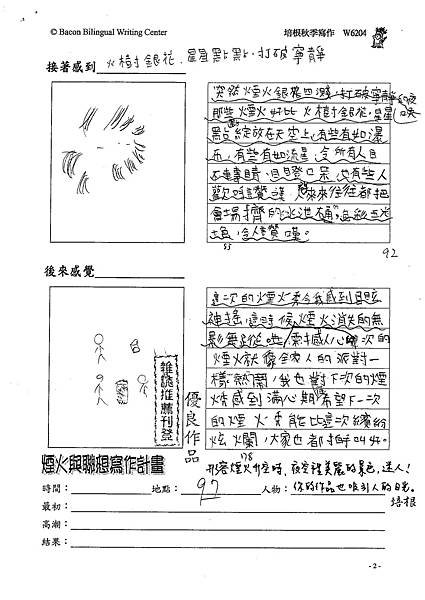 © Bacon Bilingual Writing Center 培根秋季寫作 W6204
接著感到 火樹銀花．星星點點．打破寧靜
突然煙火銀花四濺，打破寧靜的夜
那些煙火好比火樹銀花，星星
點點綻放在天空上，有些有如瀑
布，有些有如流星，令所有人目
不轉睛，目瞪口呆，也有些人
歡呼讚嘆，來來往往都把
會場擠的水洩不通，
，令人讚嘆。
92
後來感覺
這次的煙火秀令我感到目眩
神搖，這時候，煙火消失的無
影無蹤，
煙火就像全家人的派對一
樣熱鬧，我也對下次的煙
火感到滿心期待，希望下一次
的煙火秀能比這次繽紛
燦爛，大家也都拍手叫好。
雜誌推薦刊登
優良作品
煙火與聯想寫作計畫
形容煙火升空時，夜空裡美麗的景色，迷人！
你的作品也吸引人的目光。
培根
時間： 地點： 97 人物：
最初：
高潮：
結果：
- 2 -